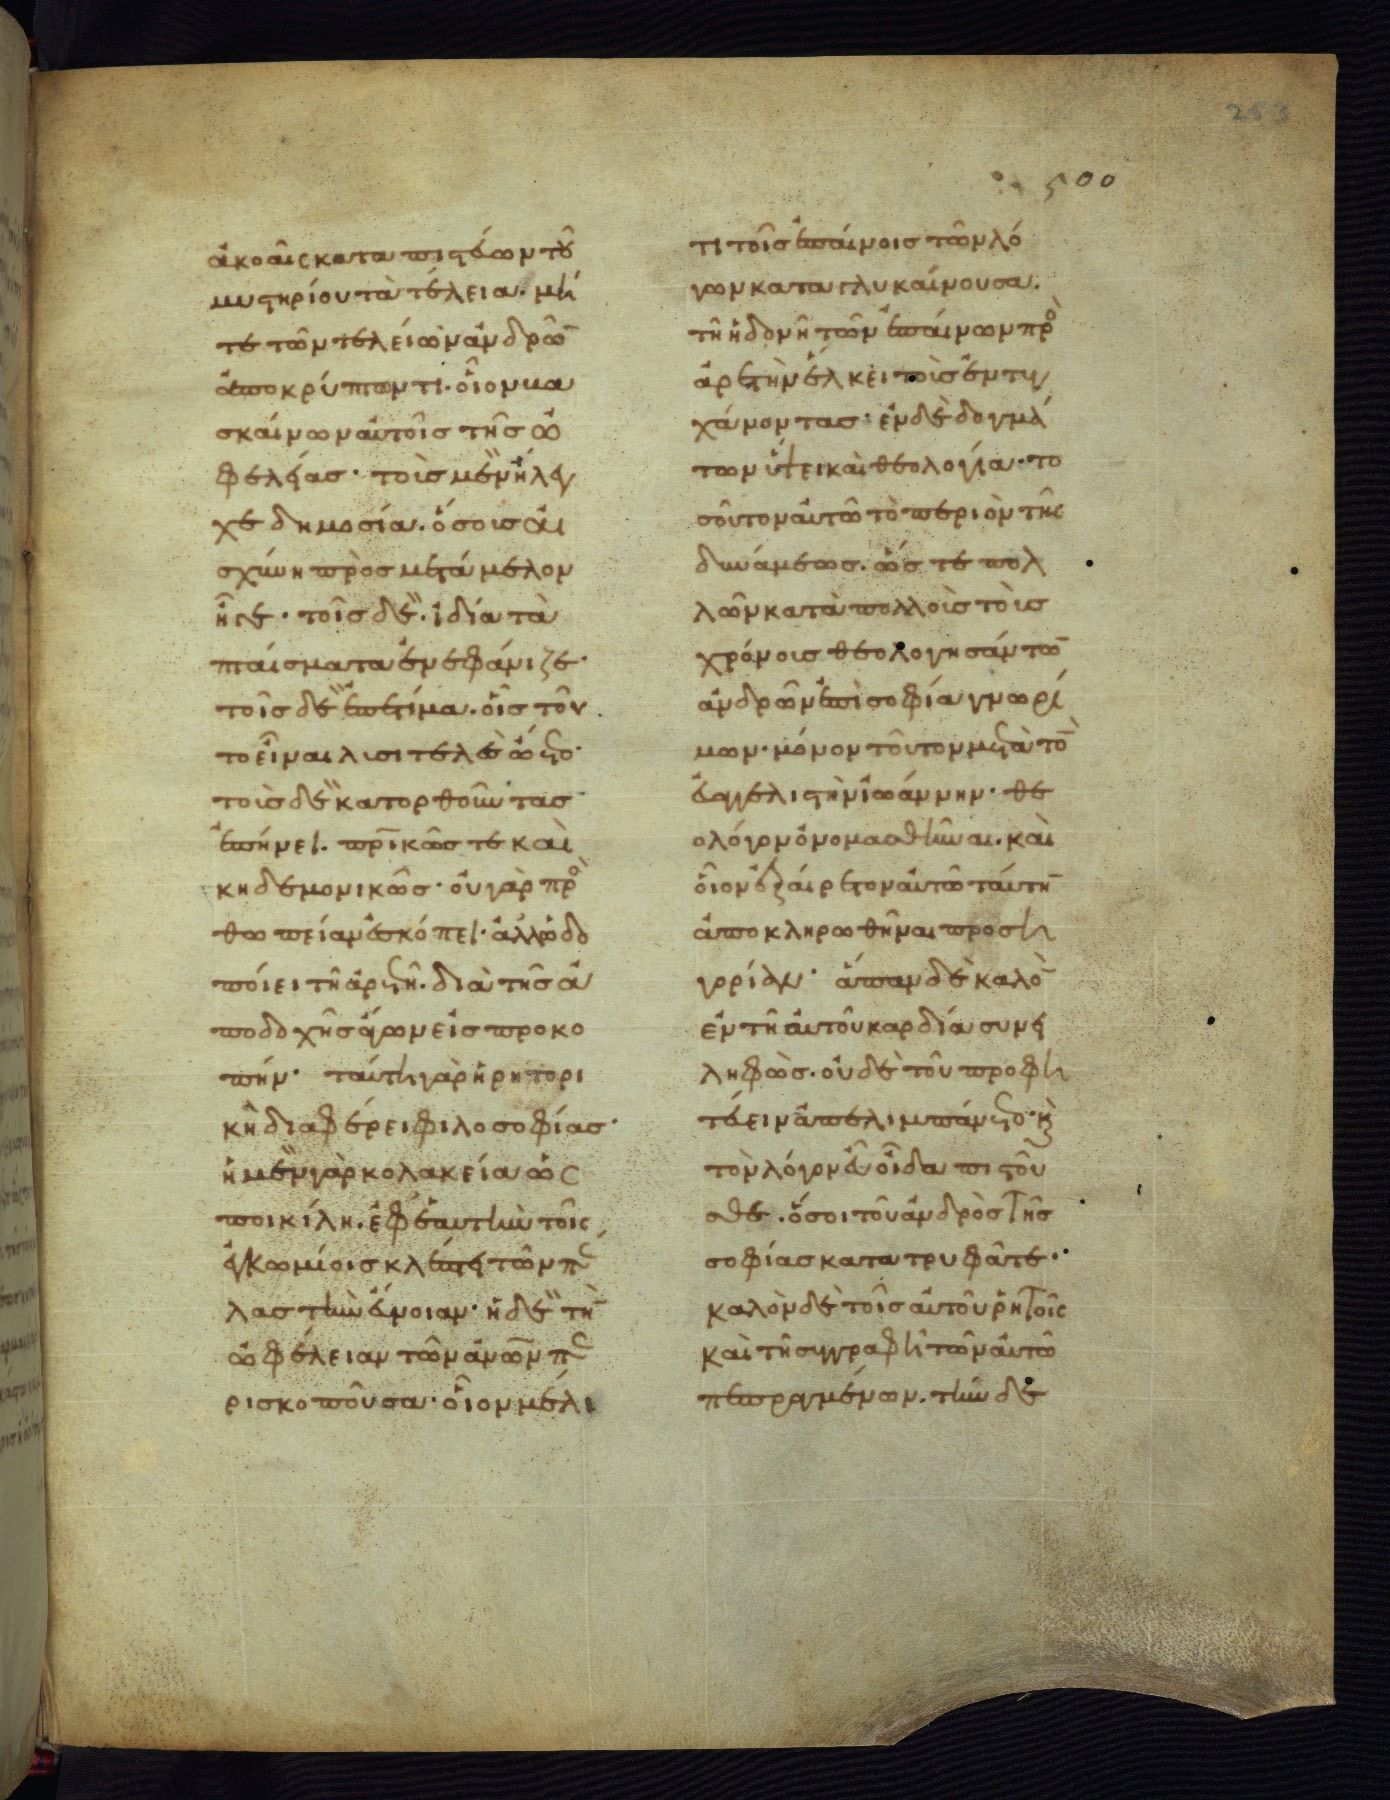 253
500
ἀκοαῖς καταπιστεύων τοῦ
μυστηρίου τὰ τέλεια. μή
τε τῶν τελείων ἀνδρῶ̅
ἀποκρύπτων τι. οἷον κα
σκαίνων αὐτοῖς τῆς ὠ
φελείας· τοῖς μὲν ἤλεγ
χε δημοσία. ὅσοις αἰ
σχύνη πρὸς μετάμελον
ἦγε· τοῖς δὲ ἰδία τὰ
πταίσματα ἐνεφάνιζε·
τοῖς δὲ ἐπετίμα. οἷς τοῦ
το εἶναι λυσιτελὲς ᾤετο·
τοὺς δὲ κατορθοῦντας
ἐπήνει. π̅ρ̅ικῶς τε καὶ
κηδεμονικῶς· οὐ γὰρ πρὸ
θωπείαν ἐσκόπει· ἀλλ' ὡδο
ποίει τῆ ἀρετῆ. διὰ τῆς ἀ
ποδοχῆς ἄγων εἰς προκο
πήν· ταύτη γὰρ ἡ ρητορι
κὴ διαφέρει φιλοσοφίας·
ἡ μὲν γὰρ κολακεία ὡς
ποικίλη. ἐφ' ἑαυτὴν τοῖς
ἐγκωμίοις κλέπτει τῶν πε
λας τὴν εὔνοιαν· ἡ δὲ τὴ̅
ὠφέλειαν τῶν ἀ̅ν̅ω̅ν πε
ρισκοποῦσα· οἷον μέλι
τι τοῖς ἐπαίνοις τῶν λό
γων καταγλυκαίνουσα.
τῆ ἡδονῆ τῶν ἐπαίνων πρὸ
ἀρετὴν ἕλκει τοὺς ἐντυγ
χάνοντας· ἐν δὲ δογμά
των ὕψει καὶ θεολογία· το
σοῦτον αὐτῶ τὸ περιὸν τῆς
δυνάμεως. ὥστε πολ
λῶν κατὰ πολλοὺς τοὺς
χρόνους θεολογησάντω̅
ἀνδρῶν ἐπὶ σοφία γνωρί
μων· μόνον τοῦτον μετὰ τὸ̅
εὐαγγελιστὴν ἰωάννην· θε
ολόγον ὀνομασθῆναι. καὶ
οἷον ἐξαίρετον αὐτῶ ταύτη̅
ἀποκληρωθῆναι προση
γορίαν· ἅπαν δὲ καλὸ̅
ἐν τῆ αὐτοῦ καρδία συνει
ληφὼς. οὐδὲ τοῦ προφη
τεύειν ἀπελιμπάνετο· καὶ
τὸν λόγον εὖ οἶδα πιστοῦ
σθε. ὅσοι τοῦ ἀνδρὸς τῆς
σοφίας κατατρυφᾶτε·
καλὸν δὲ τοῖς αὐτοῦ ῥητοῖς
καὶ τῆ συγγραφῆ τῶν αὐτῶ
πεπραγμένων. τὴν δὲ